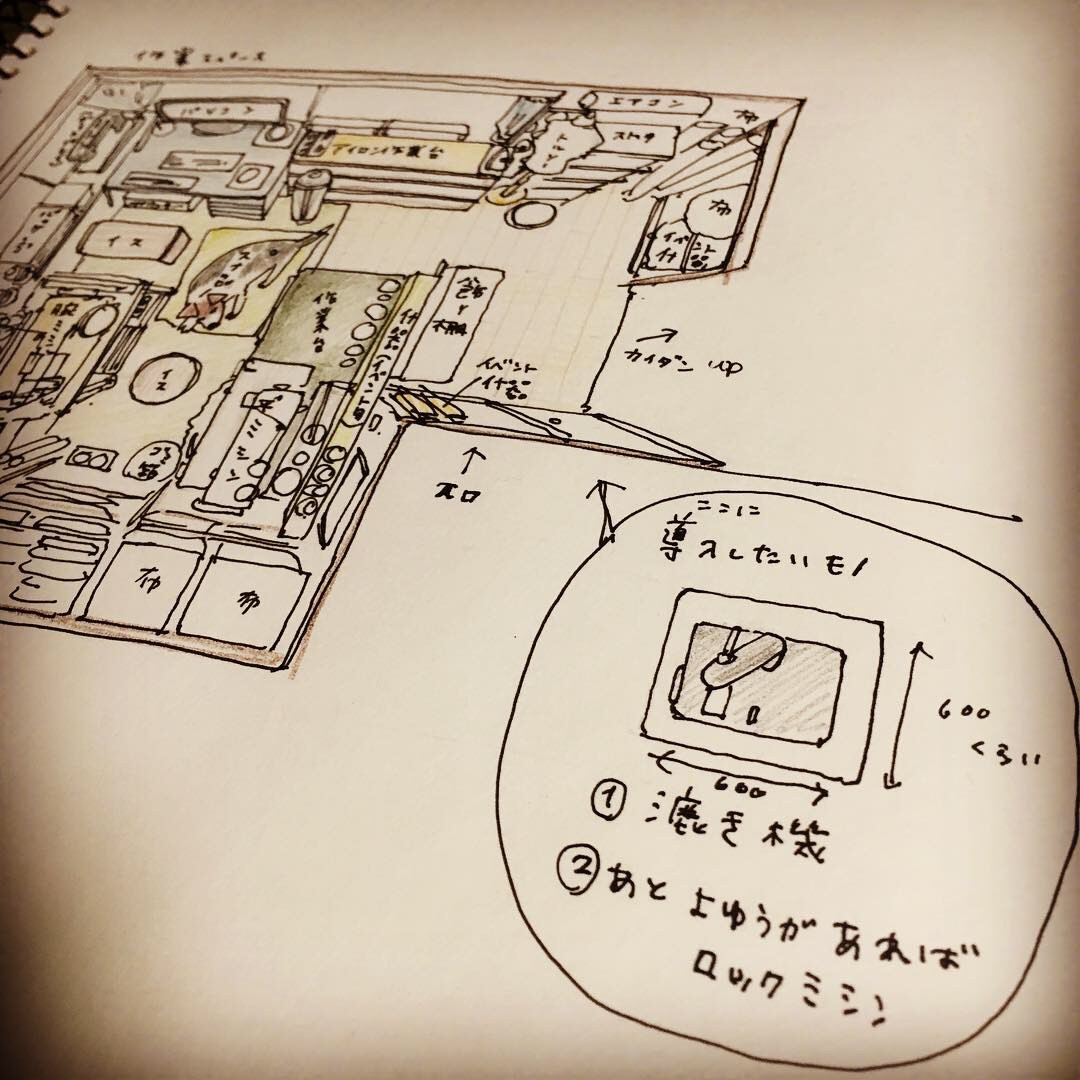 作業スペース
パソコン
エアコン
布
アイロン作業台
トルソー
ストック
布
イス
イベント什器
スナフ
作業台
飾り棚
什器(イベント用)
腕ミシン
カイダン UP
イス
イベント
什器
ゴミ箱
ミシン
入口
ここに
導入したいモノ
布
布
600
くらい
600
① 漉き機
② あと よゆうが あれば
ロックミシン